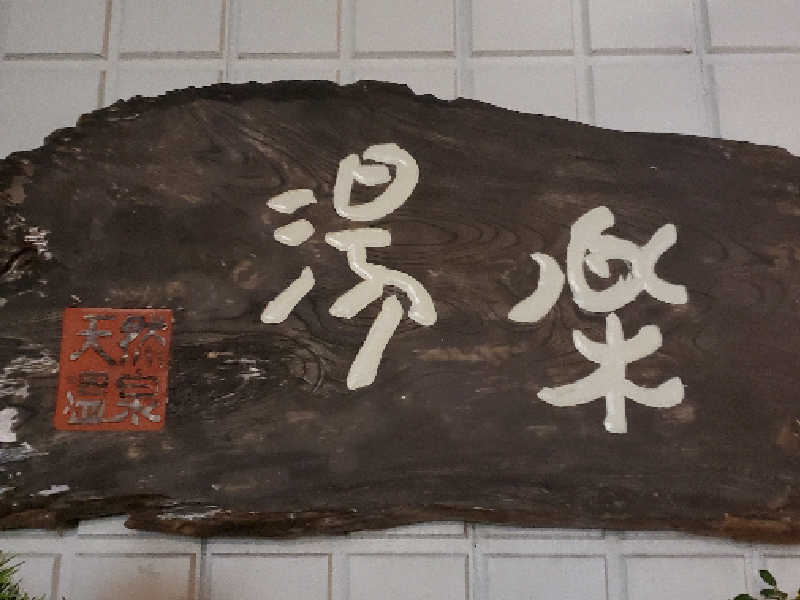 湯楽
天然
温泉